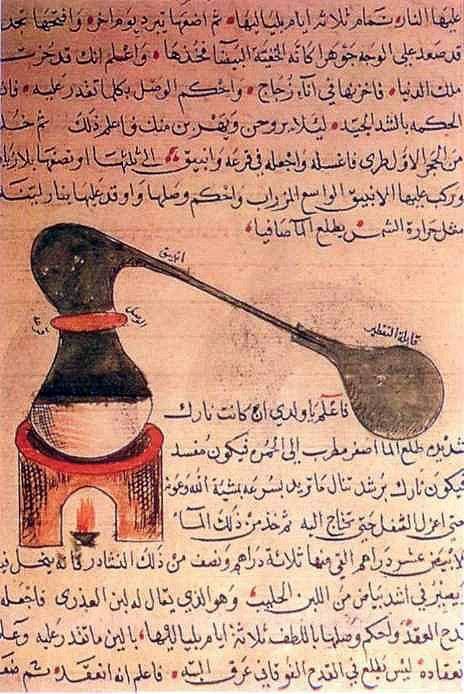 عليها النار تمام ثلاثة ايام بلياليها ثم اضعها تبرد يوم اخر وافتحها تجد
قد صعد على الوجه جوهرا كانه الفضة البيضا فخذها واعلم انك قد حزت
ملك الدنيا فاخزنها في اناء زجاج واحكم الوصل بكلما تقدر عليه
المحكمه بالشد الجيد ليلا يروحن ويفر بن منك فاعلم ذلك ثم خذ
من الجزء الاول طرى فاغسله واجعله في قرعه وانبيق
وركب عليها الانبيق الواسع المزراب واحكم وصلها واوقد عليها بنار لينة
مثل حرارة الشمس يطلع الما صافيا
انبيق
الوصل
قرعة
قابلة التقطير
فاعلم يا ولدي ان كانت نارك
شديده طلع الما اصفر مطرب الى الحمره فيكون مفسد
فيكون نارك برشد تنال ما تريد بسرعه بمشية الله وعونه
حتى اعزل الثفل حتى تحتاج اليه ثم خذ من ذلك الماء
الابيض عشر دراهم القي فيها ثلاثة دراهم ونصف من ذلك النشادر فانه ينحل فيه
يصير في اشد بياض من اللبن الحليب وهو الذي يقال له لبن العذرى فاجعله
قدح العقد واحكم وصلها باللطف ثلاثة ايام بلياليها بالين ما تقدر عليه وعلامة
انعقاده ليس يطلع في القدح الفوقاني عرق البته فاعلم انه انعقد ثم ضعه